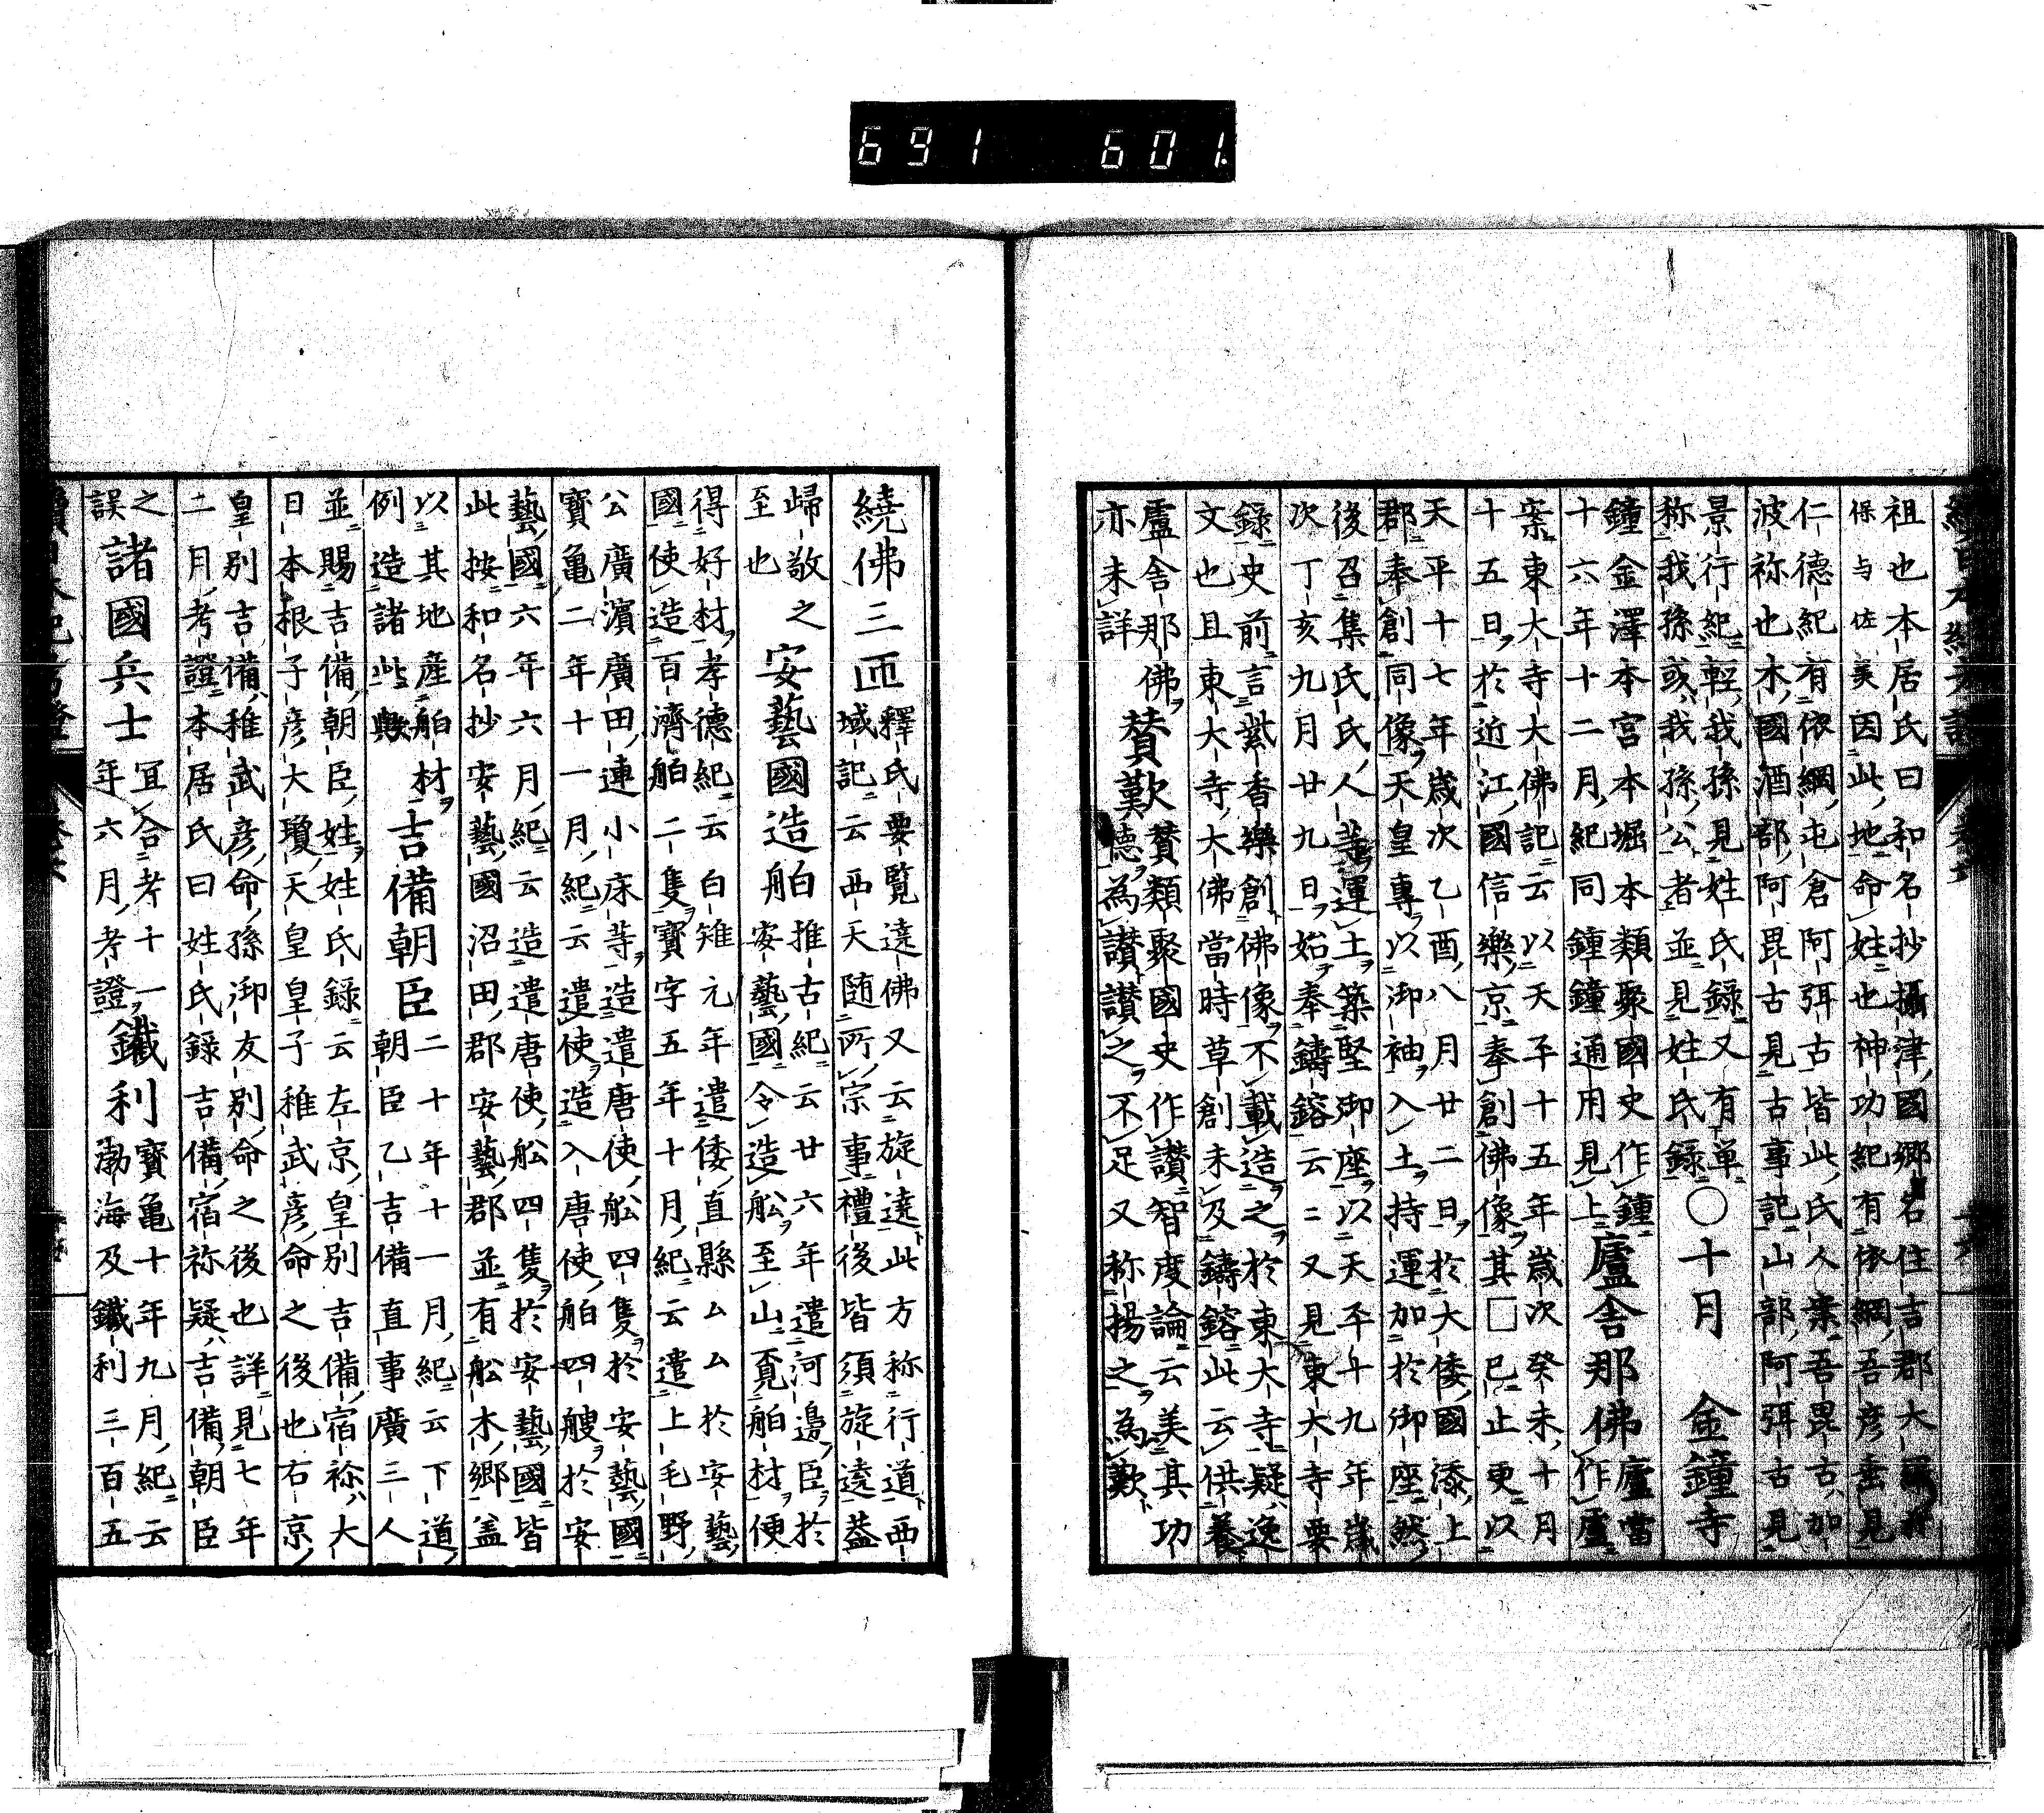 691 601
祖也本居氏曰和名抄攝津國郷名住吉郡大
保与佐美因此地命姓也神功紀有依網吾彦垂見
仁德紀有依網屯倉阿弭古皆此氏人案吾毘古加
波祢也木國酒部阿毘古見古事記山部阿弭古見
景行紀輕我孫見姓氏録又有單
称我孫或我孫公者並見姓氏録
○十月　金鐘寺
鐘金澤本宮本堀本類聚國史作鍾
十六年十二月紀同鍾鐘通用見上
盧舎那佛
盧當
作廬
案東大寺大佛記云以天平十五年歳次癸未十月
十五日於近江國信樂京奉創佛像其□已止更以
天平十七年歳次乙酉八月廿二日於大倭國添上
郡奉創同像天皇專以御袖入土持運加於御座然
後召集氏氏人等運土築堅御座以天平十九年歳
次丁亥九月廿九日始奉鑄鎔云云又見東大寺要
錄史前言紫香樂創佛像不載造之於東大寺疑逸
文也且東大寺大佛當時草創未及鑄鎔此云供養
盧舎那佛
亦未詳
賛歎
賛類聚國史作讃智度論云美其功
德為讃讃之不足又称揚之為歎
繞佛三匝
釋氏要覧遶佛又云旋遶此方称行道西
域記云西天随所宗事禮後皆須旋遶蓋
歸敬之
至也
安藝國造舶
推古紀云廿六年遣河邉臣於
安藝國令造舩至山覓舶材便
得好材孝德紀云白雉元年遣倭直縣ムム於安藝
國使造百濟舶二隻寶字五年十月紀云遣上毛野
公廣濱廣田連小床等造遣唐使舩四隻於安藝國
寶亀二年十一月紀云遣使造入唐使舶四艘於安
藝國六年六月紀云造遣唐使舩四隻於安藝國皆
此按和名抄安藝國沼田郡安藝郡並有舩木郷盖
以其地産舶材
例造諸此歟
吉備朝臣
二十年十一月紀云下道
朝臣乙吉備直事廣三人
並賜吉備朝臣姓姓氏録云左京皇別吉備宿祢大
日本根子彦大瓊天皇皇子稚武彦命之後也右京
皇別吉備稚武彦命孫御友別命之後也詳見七年
二月考證本居氏曰姓氏録吉備宿祢疑吉備朝臣
之
誤
諸國兵士
宜合考十一
年六月考證
鐵利
寶亀十年九月紀云
渤海及鐵利三百五